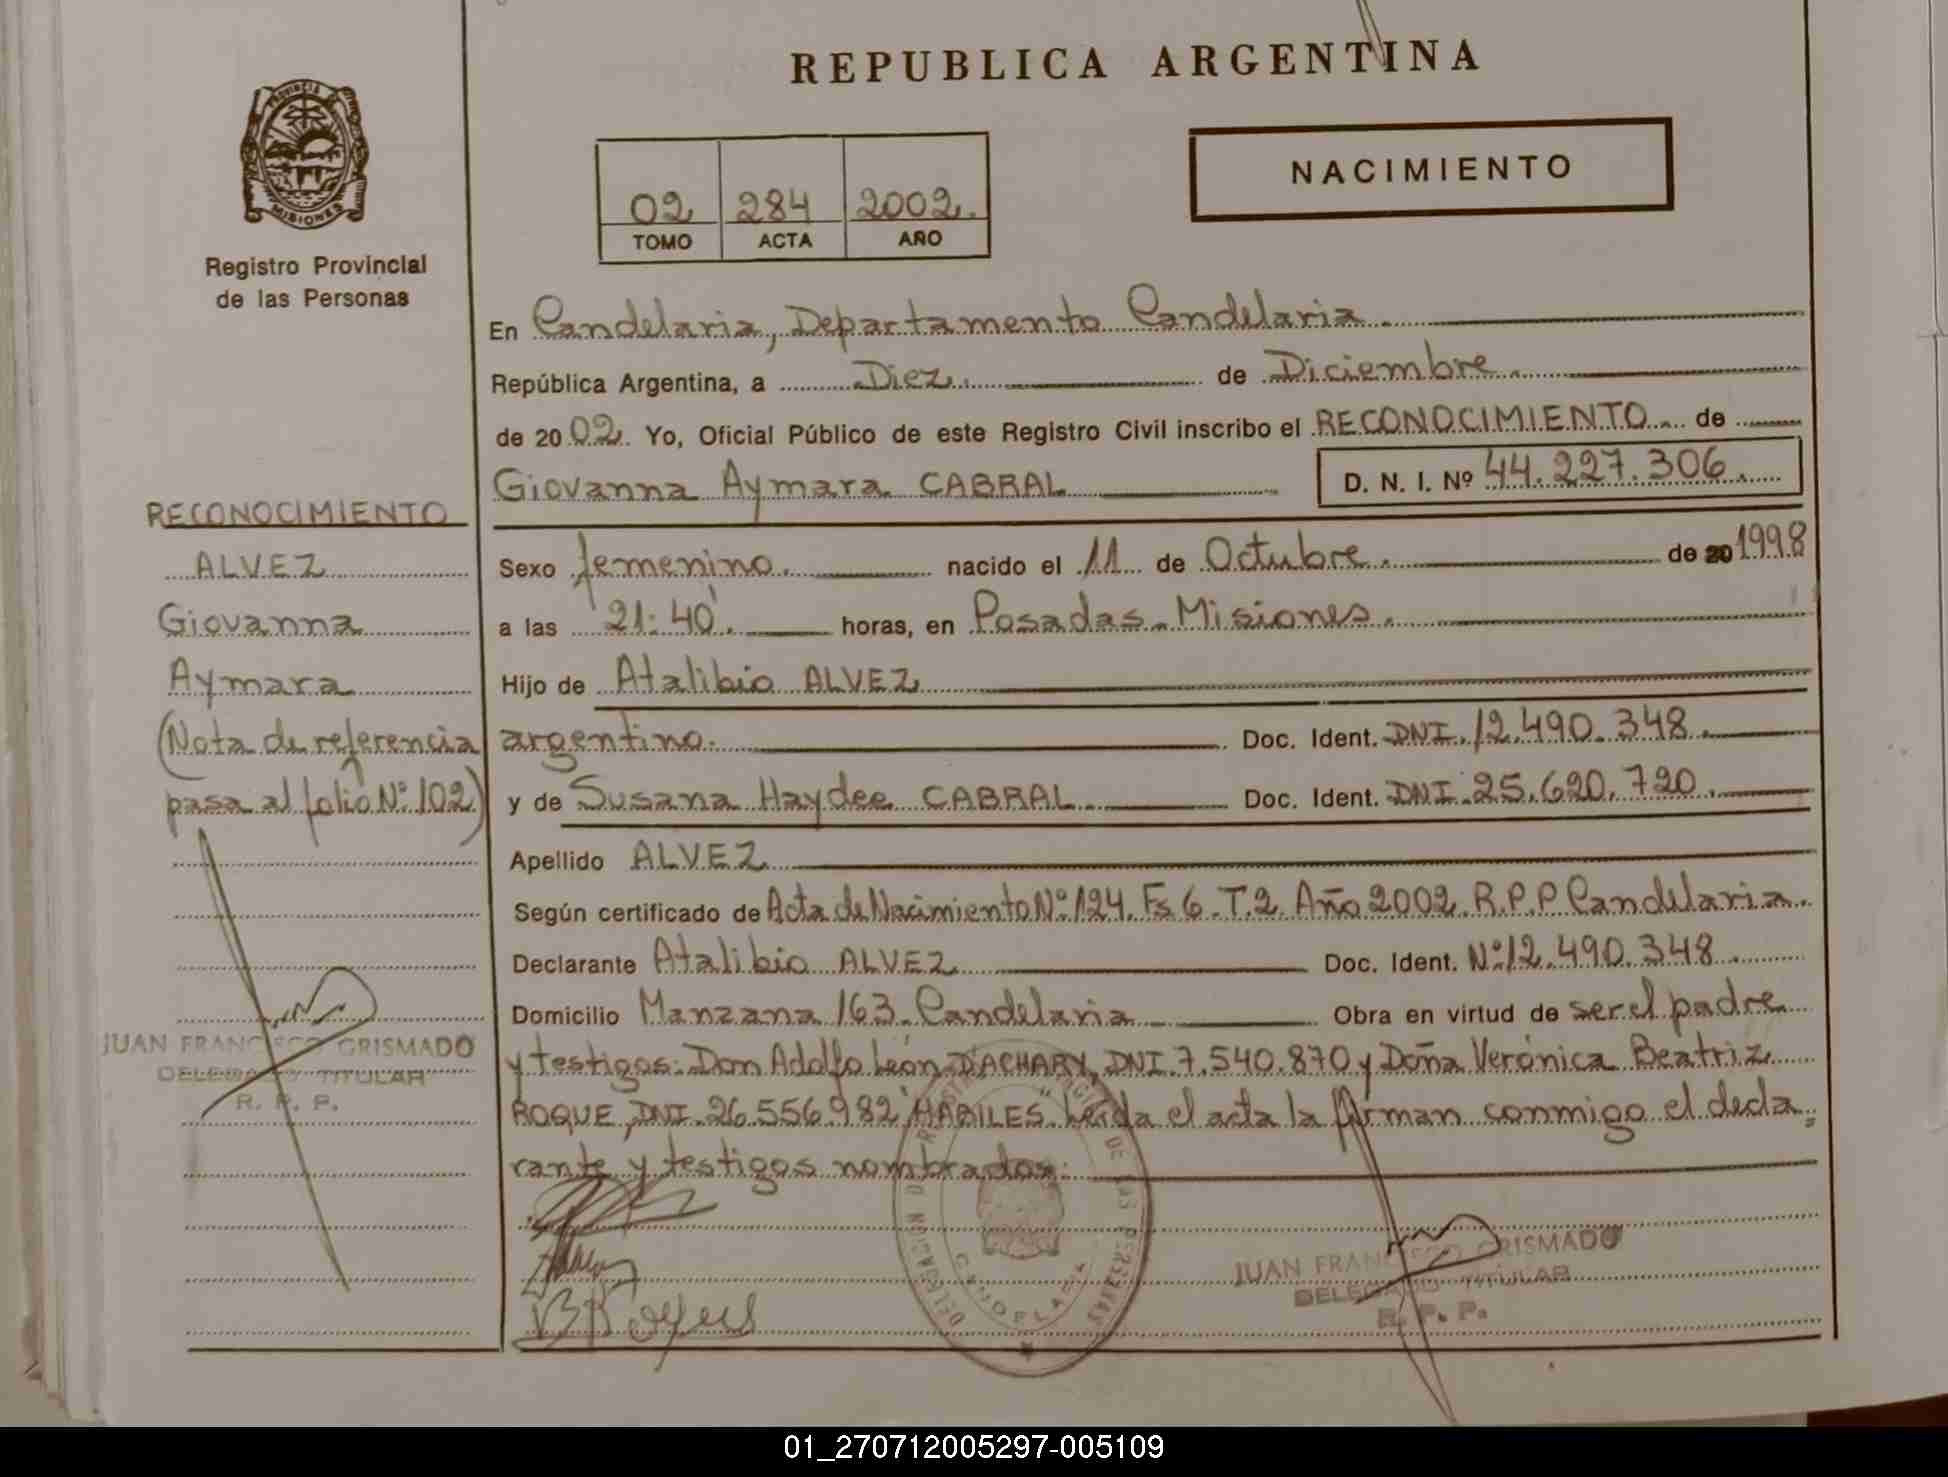 REPUBLICA ARGENTINA
PROVINCIA DE
MISIONES
Registro Provincial
de las Personas
NACIMIENTO
02 284 2002.
TOMO ACTA AÑO
En Candelaria, Departamento Candelaria.
República Argentina, a Diez. de Diciembre.
de 20 02. Yo, Oficial Público de este Registro Civil inscribo el RECONOCIMIENTO. de
Giovanna Aymara CABRAL
D. N. I. Nº 44.227.306.
RECONOCIMIENTO
ALVEZ
Giovanna
Aymara
(Nota de referencia
pasa al folio Nº 102)
JUAN FRANCISCO GRISMADO
DELEGADO TITULAR
R. P. P.
Sexo femenino. nacido el 11 de Octubre. de 20 1998
a las 21:40'. horas, en Posadas. Misiones.
Hijo de Atalibio ALVEZ
argentino. Doc. Ident. DNI. 12.490.348.
y de Susana Haydee CABRAL Doc. Ident. DNI. 25.620.720.
Apellido ALVEZ
Según certificado de Acta de Nacimiento Nº 124. Fs 6. T.2. Año 2002. R.P.P Candelaria.
Declarante Atalibio ALVEZ Doc. Ident. Nº 12.490.348.
Domicilio Manzana 163. Candelaria Obra en virtud de ser el padre
y testigos: Don Adolfo León D'ACHARY, DNI. 7.540.870 y Doña Verónica Beatriz
ROQUE, DNI. 26.556.982, HABILES. Leída el acta la firman conmigo el decla=
rante y testigos nombrados:
JUAN FRANCISCO GRISMADO
DELEGADO TITULAR
R. P. P.
01_270712005297-005109